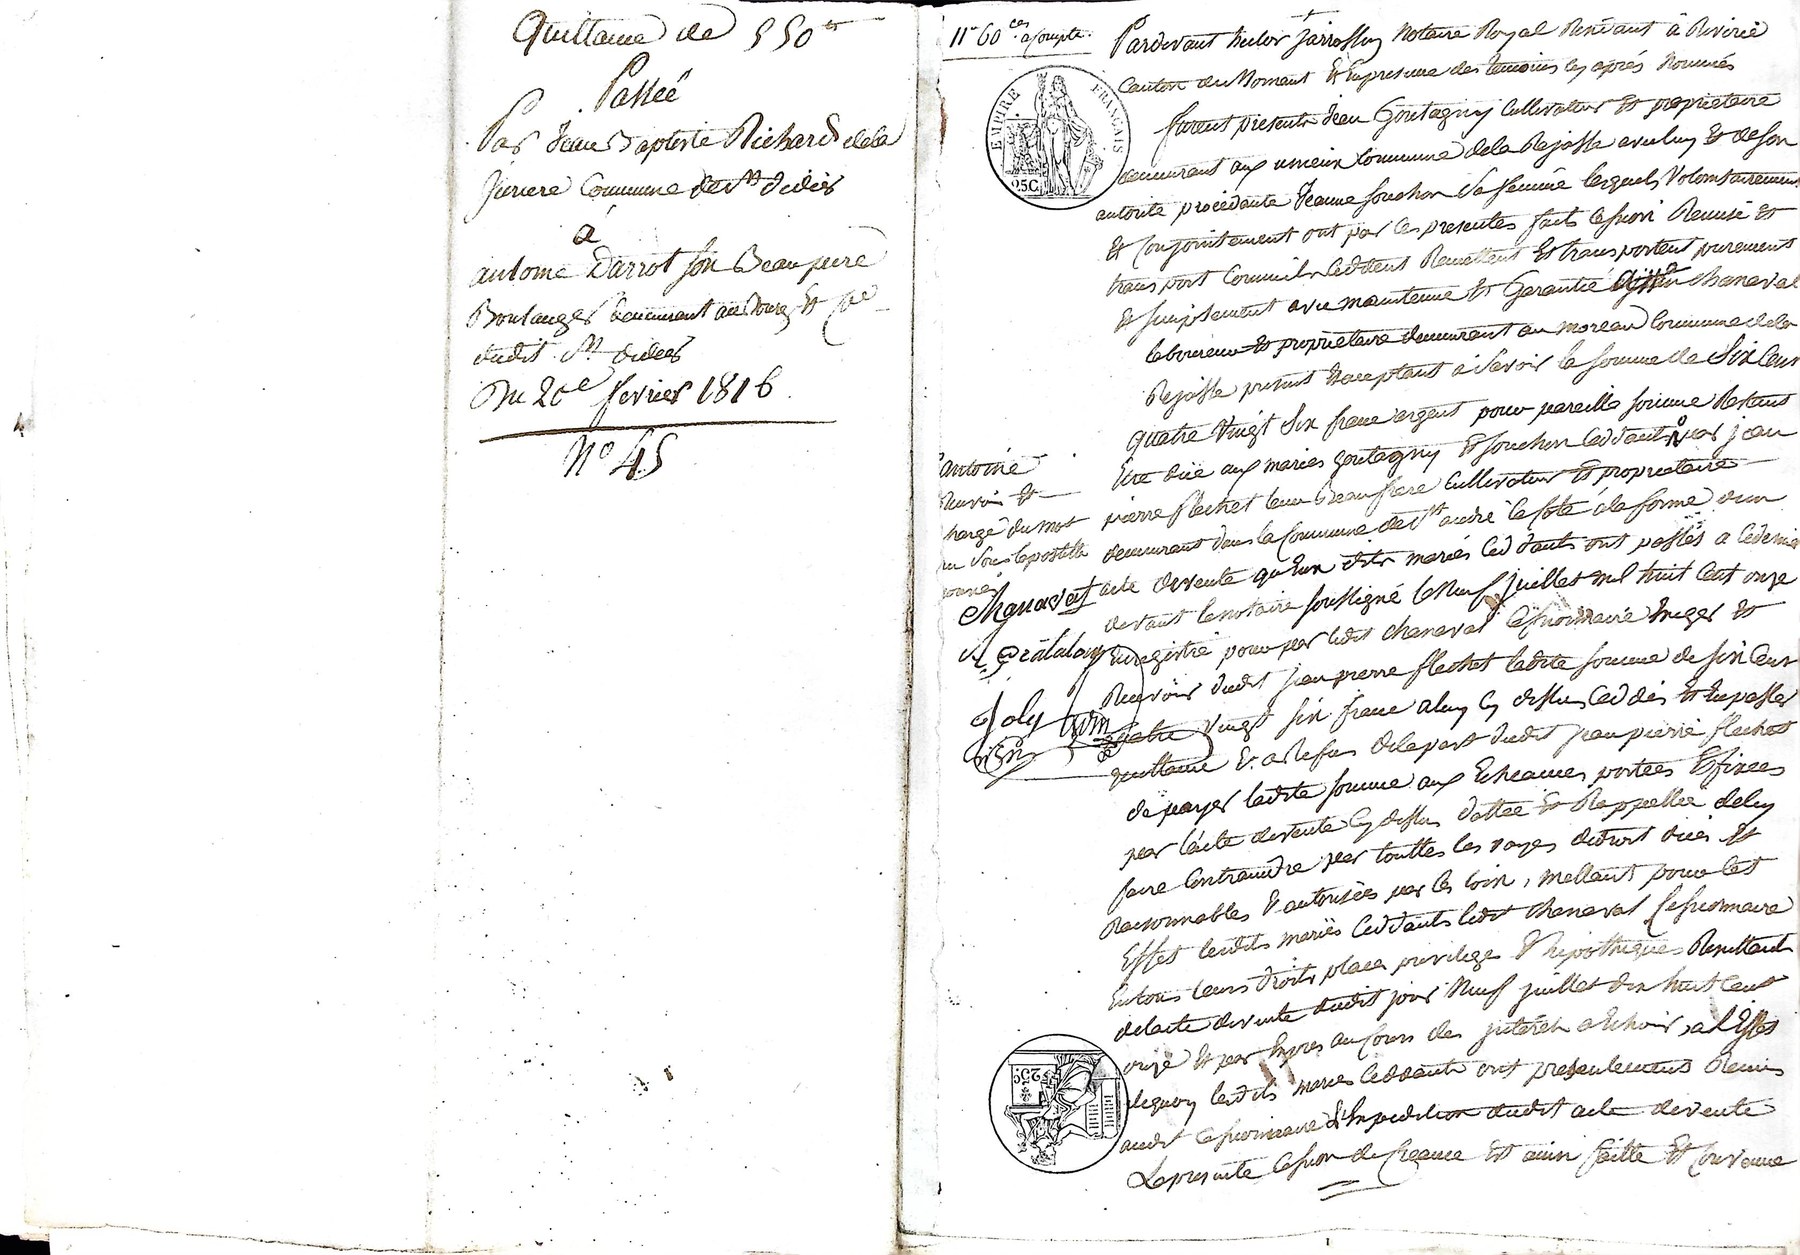 Quittance de 550 tt
Passée
Par Jean Baptiste Richard de la
Commune de St didier
à
antoine Darrot son Beau pere
Boulanger demeurant au et Cne
dudit St didier
Du 20e fevrier 1816
No 45
11 60ces acompte.
Pardevant Jarrossay Notaire Royal Residant à Riverie
Canton de Mornant Et En presence des temoins cy après Nommés
furent presents Jean Goutagny Cultivateur Et proprietaire
demeurant aux Commune de la Rejasse avec luy Et de Son
autorité procedante Jeanne Souchon Sa femme lesquels Volontairement
Et Conjointement ont par Ces presentes fait Cession Remise Et
transport Comme ils Ceddent Remettent Et transportent purement
Et Simplement avec maintenue Et Garantie à Chanavat
laboureur Et proprietaire demeurant au moreau Commune de la
Rejasse present Et acceptant à Savoir la Somme de Six Cent
quatre Vingt Six franc argent pour pareille Somme Restant
Etre düe aux mariés goutagny Et Souchon Ceddants par jean
pierre flechet leur Beau frere Cultivateur Et proprietaire
demeurant dans la Commune de St andré la Cote à la forme d'un
acte de vente qu'Eux dits mariés Ceddants ont passés a Ce dernier
devant le notaire Soussigné le Neuf Juillet mil huit Cent onze
Enregistré pour par ledit Chanavat Cessionnaire Exiger Et
Recevoir dudit jean pierre flechet ladite Somme de Six Cent
quatre Vingt Six franc a luy Cy dessus Ceddés Et En passer
quittance Et a Refus de la part dudit jean pierre flechet
de payer ladite Somme aux Echeances portées Et fixées
par l'acte de vente Cy dessus datté Et Rappellé de luy
faire Contraindre par touttes les voyes de droit dües Et
Raisonnables Et autorisées par les loix, mettant pour Cet
Effet lesdits mariés Ceddants ledit Chanavat Cessionnaire
En tous leurs droits place privilege Et hipothèques Resultant
de l'acte de vente dudit jour Neuf juillet dix huit Cent
onze Et par Exprès au Cours des interêts a Echoir, a l'Effet
de quoy lesdits mariés Ceddants ont presentement Remis
audit Cessionnaire l'Expedition dudit acte de vente
La presente Cession de Creance Est ainsi faitte Et Convenue
antoine
du mot
Sous l'apostille
Chanavat
Joly
EMPIRE FRANÇAIS
25C
25c